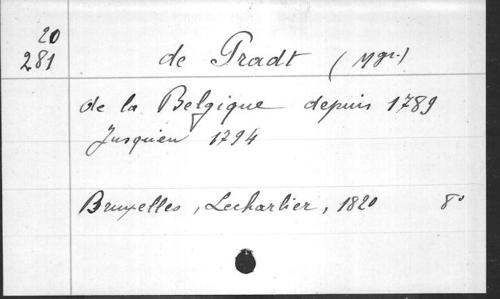 20
281
de Pradt (Mgr.)
de la Belgique depuis 1789
jusqu'en 1794
Bruxelles, Lecharlier, 1820 8°